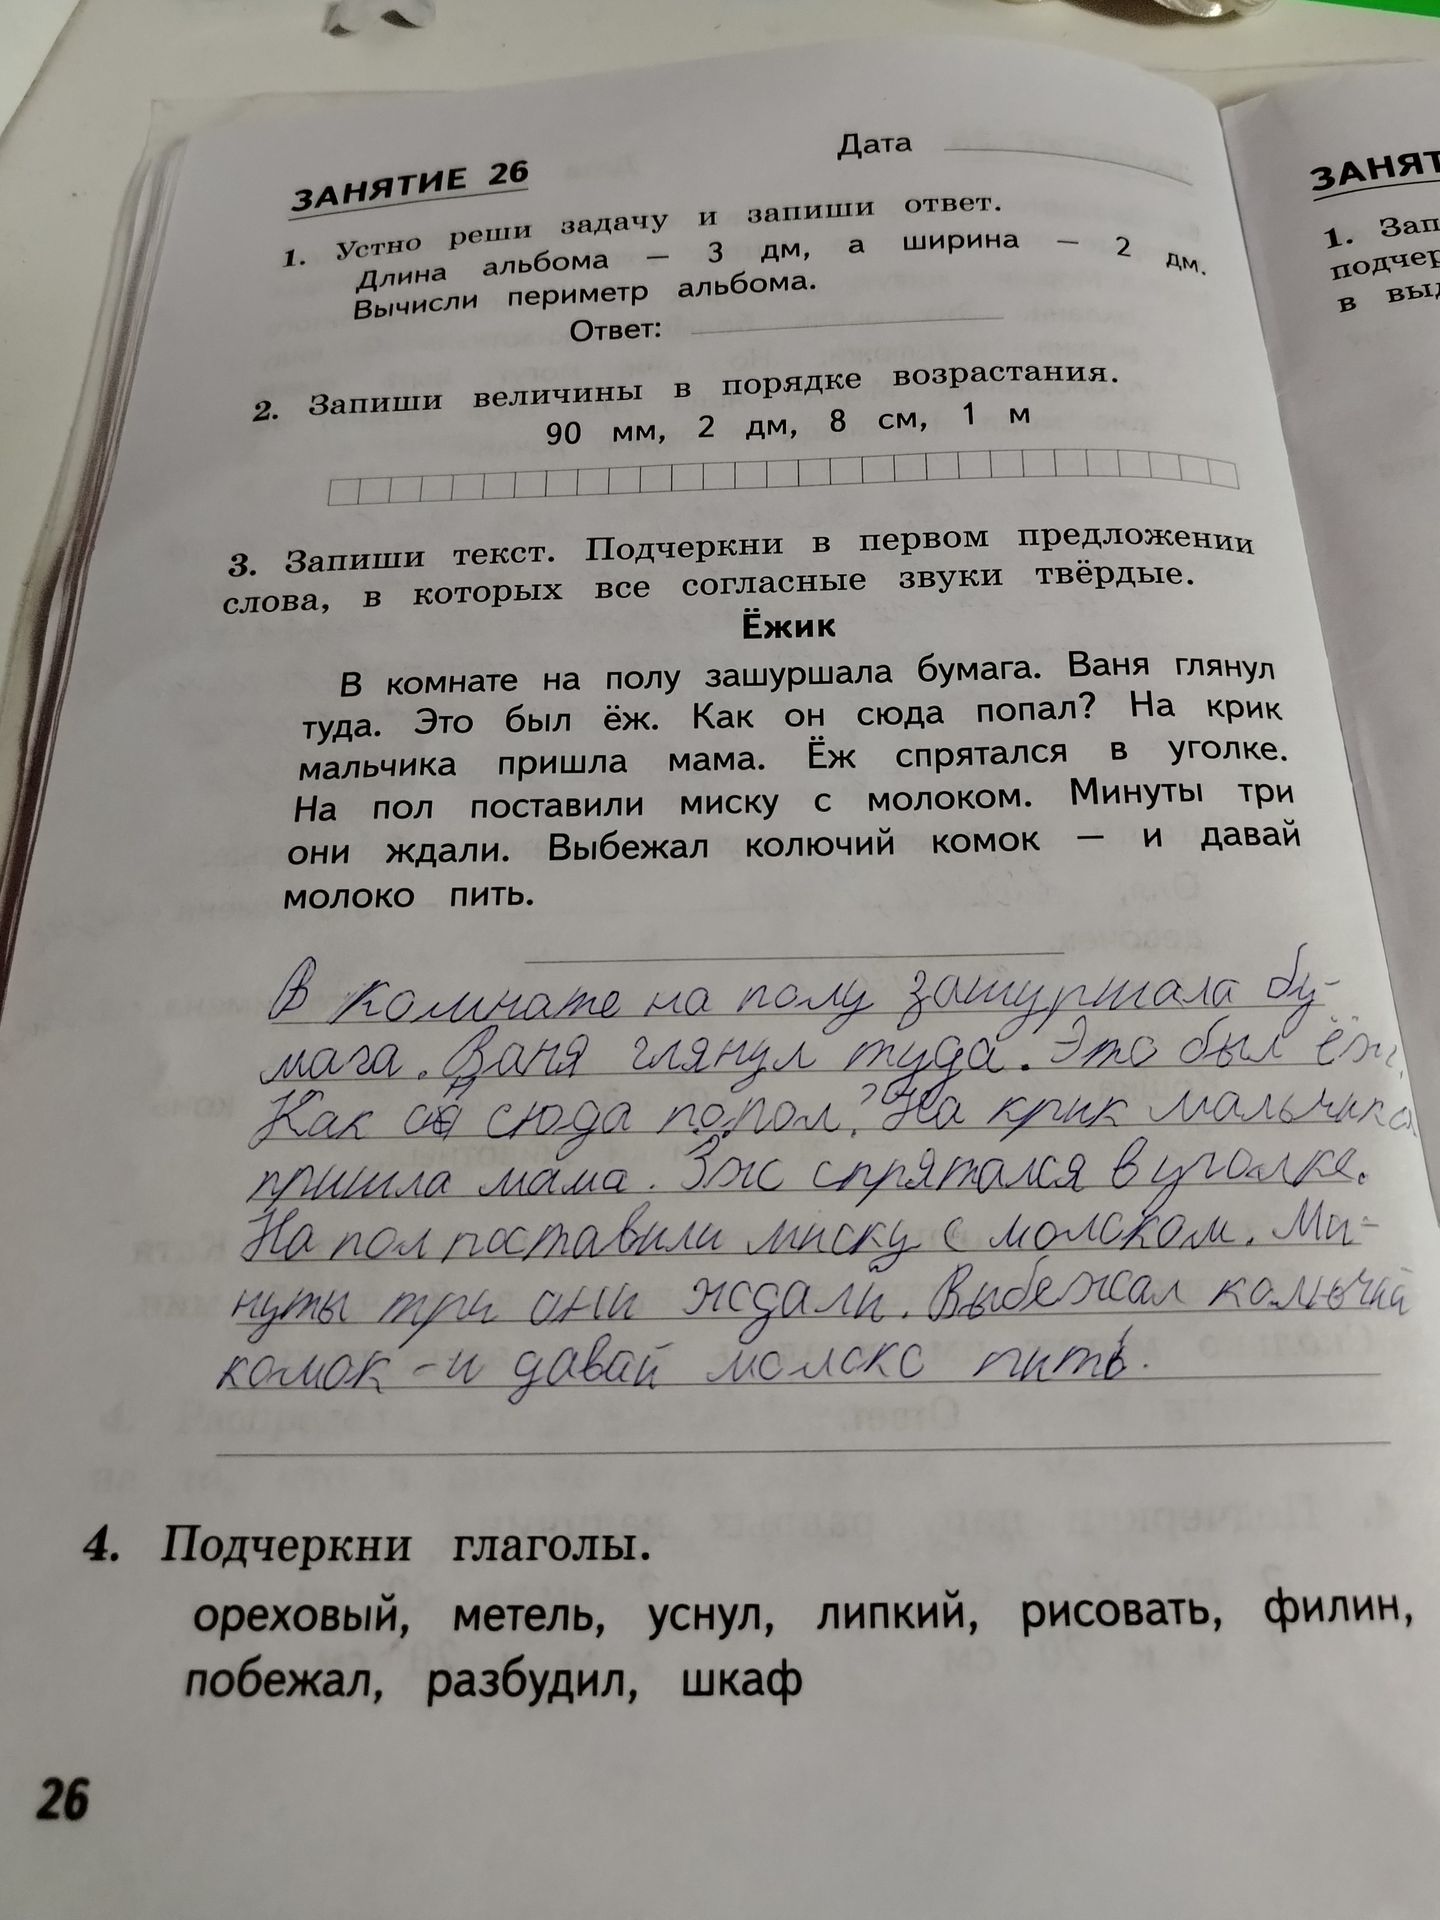 Дата
ЗАНЯТИЕ 26
1. Устно реши задачу и запиши ответ.
Длина альбома — 3 дм, а ширина — 2 дм.
Вычисли периметр альбома.
Ответ:
2. Запиши величины в порядке возрастания.
90 мм, 2 дм, 8 см, 1 м
3. Запиши текст. Подчеркни в первом предложении
слова, в которых все согласные звуки твёрдые.
Ёжик
В комнате на полу зашуршала бумага. Ваня глянул
туда. Это был ёж. Как он сюда попал? На крик
мальчика пришла мама. Ёж спрятался в уголке.
На пол поставили миску с молоком. Минуты три
они ждали. Выбежал колючий комок — и давай
молоко пить.
В комнате на полу зашуршала бу-
мага. Ваня глянул туда. Это был ёж.
Как сюда попол? На крик мальчика
пришла мама. Эж спрятался в уголке.
На пол поставили миску с молоком. Ми-
нуты три они ждали. Выбежал колючий
комок - и давай молоко пить.
4. Подчеркни глаголы.
ореховый, метель, уснул, липкий, рисовать, филин,
побежал, разбудил, шкаф
26
ЗАНЯТ
1. Зап
подчер
в выд